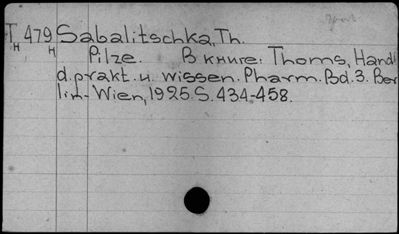 T 479 Sabalitschka, Th.
н н Pilze. В книге: Thoms, Hand
d. prakt. u. wissen. Pharm. Bd. 3. Ber
lin-Wien, 1925. S. 434-458.